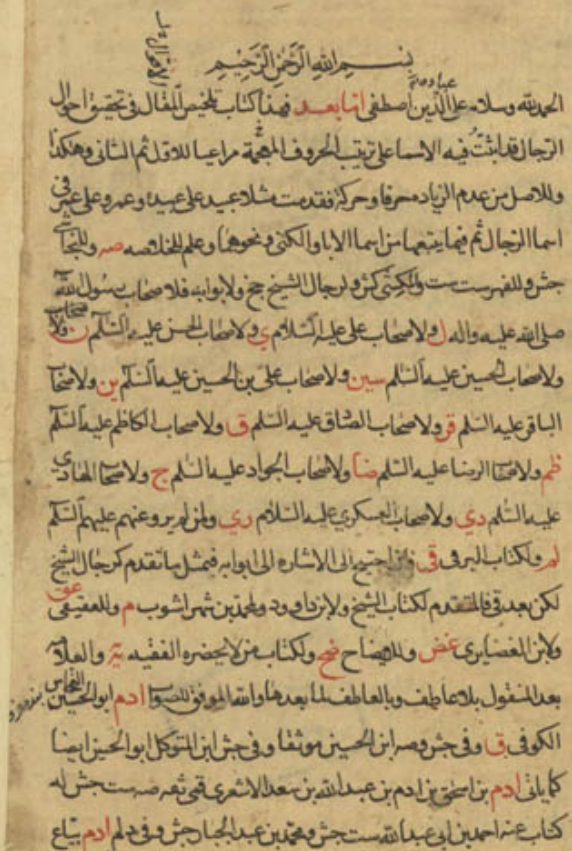 بسم الله الرحمن الرحيم
الحمد لله وسلام على عباده الذين اصطفى اما بعد فهذا كتاب تلخيص المقال في تحقيق احوال
الرجال قد اثبت فيه الاسما على ترتيب الحروف المعجمة مراعيا للاول ثم الثاني وهكذا
وللاصل من عدم الزيادة حرفا وحركة فقدمت مثلا عبيد على عبيدة وعمرو على عمر في
اسما الرجال ثم فيما يتبعها من اسما الابا والكنى ونحوهما وعلم للخلاصه صه وللنجاشي
جش وللفهرست ست وللكشي كش ولرجال الشيخ جخ ولابوابه فلاصحاب رسول الله
صلى الله عليه واله ل ولاصحاب على عليه السلام ي ولاصحاب الحسن عليه السلام ن
ولاصحاب الحسين عليه السلم سين ولاصحاب على بن الحسين عليه السلم ين ولاصحاب
الباقر عليه السلم قر ولاصحاب الصادق عليه السلم ق ولاصحاب الكاظم عليه السلم
ظم ولاصحاب الرضا عليه السلم ضا ولاصحاب الجواد عليه السلم ج ولاصحاب الهادي
عليه السلم دي ولاصحاب العسكري عليه السلام ري ولمن لم يرو عنهم عليهم السلم
لم ولكتاب البرقي قي فان احتيج الى الاشاره الى ابوابه فبمثل ما تقدم لرجال الشيخ
لكن بعد قي فالمتقدم لكتاب الشيخ ولابن داوود د ولمحمد بن شهراشوب م وللعقيقي عق
ولابن الغضايري غض وللايضاح ضح ولكتاب من لا يحضره الفقيه يه والعلامة
بعد المنقول بلا عاطف وبالعاطف لما بعدها والله الموفق للصواب ادم ابو الحسين النخاس
الكوفي ق وفي جش وصه ابن الحسين موثقا وفي جش ابن المتوكل ابو الحسين ايضا
كما ياتي ادم بن اسحق بن ادم بن عبد الله بن سعد الاشعري قمي ثقه صه ست جش له
كتاب عنه احمد بن ابي عبد الله ست جش ومحمد بن عبد الجبار جش وفي د لم ادم بياع